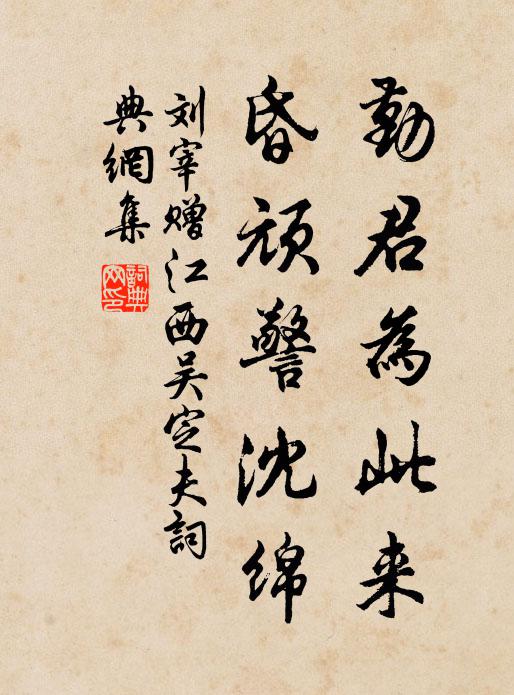 勤君為此来
昏顽警沈绵
刘宰赠江西吴定夫詞
典網集
詞典
网印